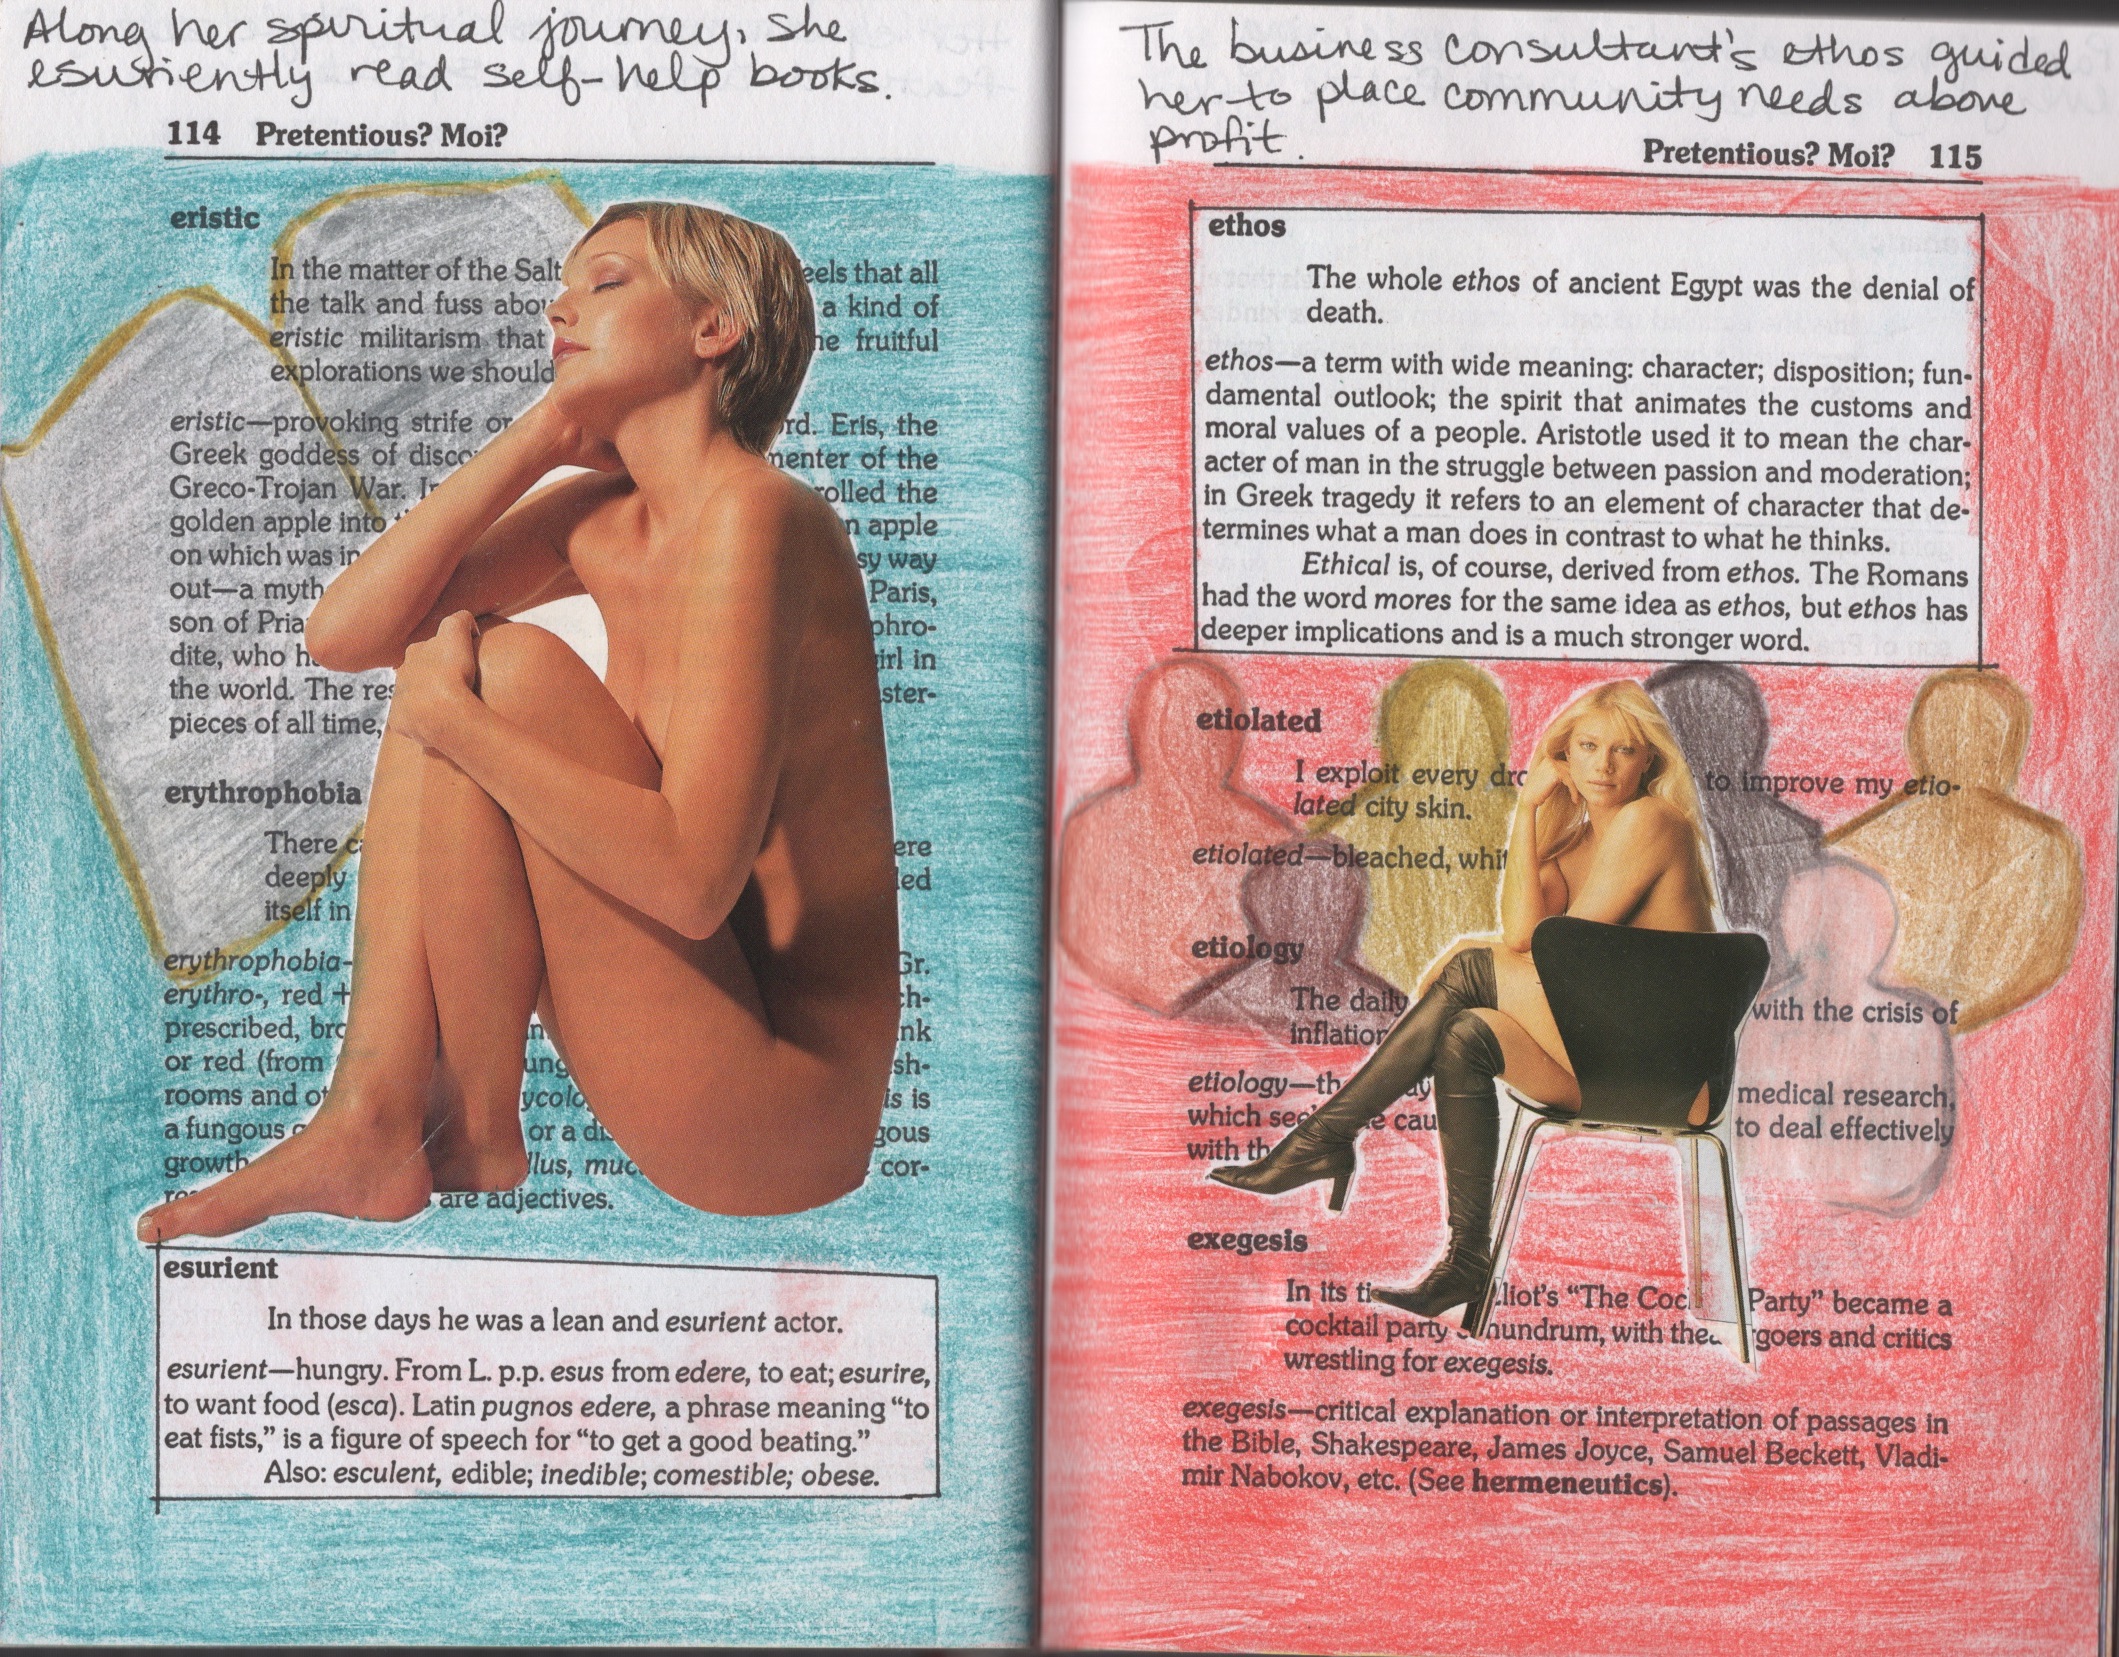 Along her spiritual journey, she
esuriently read self-help books.
114 Pretentious? Moi?
eristic
In the matter of the Salt eels that all
the talk and fuss a kind of
eristic militarism that fruitful
explorations we should
eristic—provoking strife or Eris, the
Greek goddess of of the
Greco-Trojan War. the
golden apple into apple
on which was way
out—a myth Paris,
son of
dite, who in
the world. The
pieces of all time,
erythrophobia
There
deeply
itself in
erythrophobia— Gr.
erythro-, red +
prescribed,
or red (from
rooms and is
a fungous or a
growth cor-
are adjectives.
esurient
In those days he was a lean and esurient actor.
esurient—hungry. From L. p.p. esus from edere, to eat; esurire,
to want food (esca). Latin pugnos edere, a phrase meaning “to
eat fists,” is a figure of speech for “to get a good beating.”
Also: esculent, edible; inedible; comestible; obese.
The business consultant's ethos guided
her to place community needs above
profit.
Pretentious? Moi? 115
ethos
The whole ethos of ancient Egypt was the denial of
death.
ethos—a term with wide meaning: character; disposition; fun-
damental outlook; the spirit that animates the customs and
moral values of a people. Aristotle used it to mean the char-
acter of man in the struggle between passion and moderation;
in Greek tragedy it refers to an element of character that de-
termines what a man does in contrast to what he thinks.
Ethical is, of course, derived from ethos. The Romans
had the word mores for the same idea as ethos, but ethos has
deeper implications and is a much stronger word.
etiolated
I exploit every to improve my etio-
lated city skin.
etiolated—bleached,
etiology
The daily with the crisis of
inflation
etiology— medical research,
which to deal effectively
with
exegesis
In its “The Party” became a
cocktail party and critics
wrestling for exegesis.
exegesis—critical explanation or interpretation of passages in
the Bible, Shakespeare, James Joyce, Samuel Beckett, Vladi-
mir Nabokov, etc. (See hermeneutics).